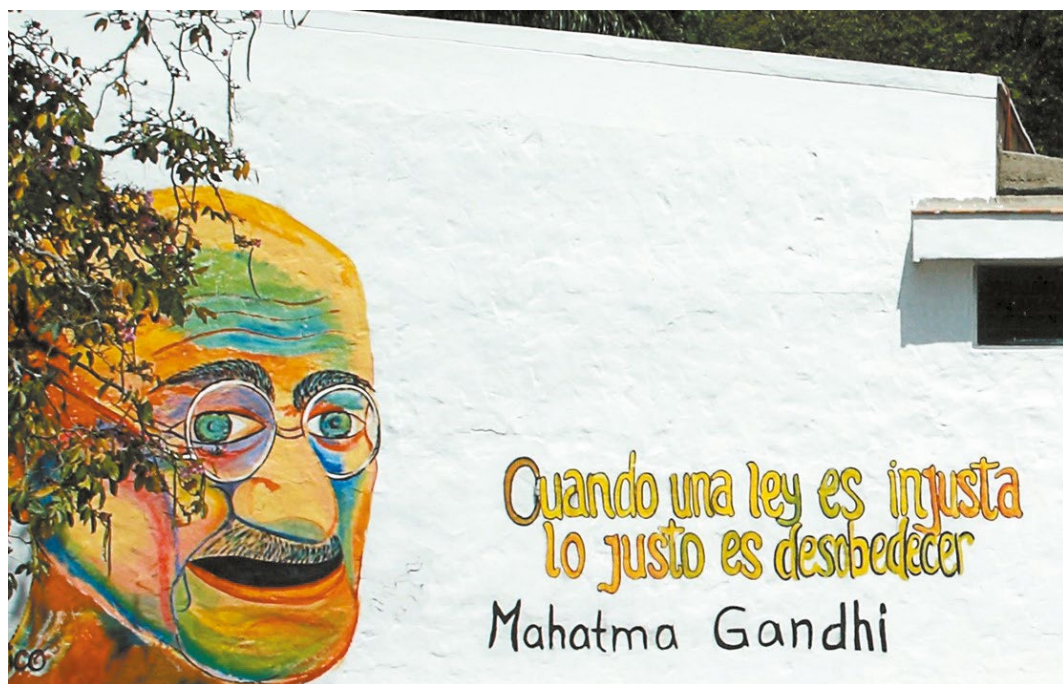 Cuando una ley es injusta
lo justo es desobedecer
Mahatma Gandhi